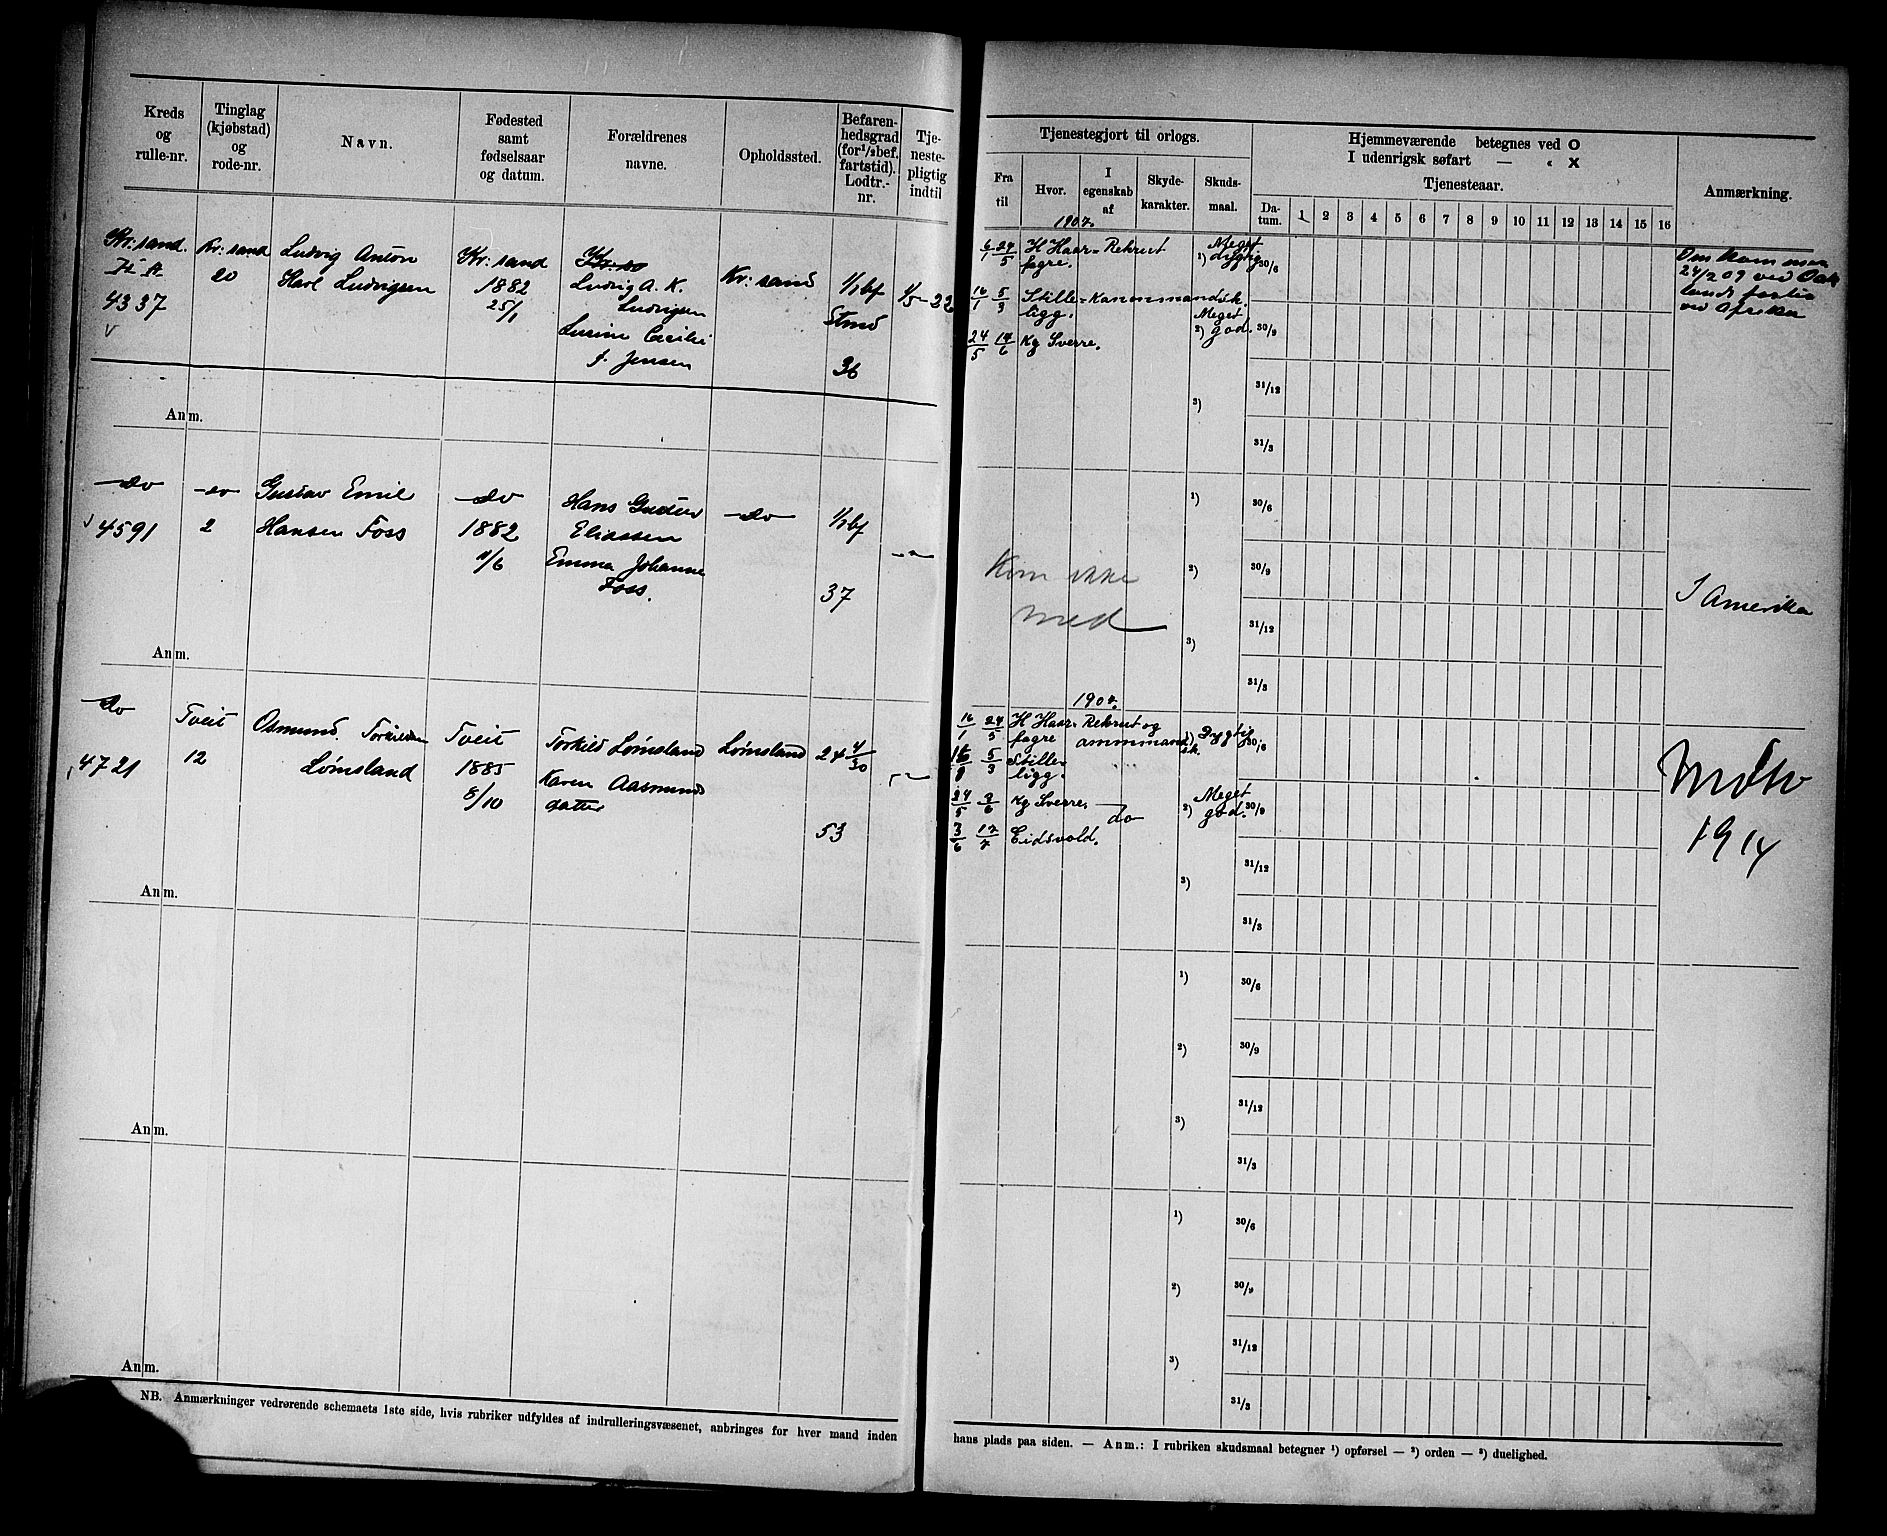 Kreds og rulle-nr.
Tinglag (kjøbstad) og rode-nr.
Navn.
Fødested samt fødselsaar og datum.
Forældrenes navne.
Opholdssted.
Befaren-hedsgrad (for 1/2 bef. fartstid). Lodtr.-nr.
Tje-neste-pligtig indtil
Tjenestegjort til orlogs.
Fra til
Hvor.
I egenskab af
Skyde-karakter.
Skuds-maal.
Hjemmeværende betegnes ved O
I udenrigsk søfart — " X
Tjenesteaar.
Da-tum. 1 2 3 4 5 6 7 8 9 10 11 12 13 14 15 16
Anmærkning.
Kr:sand.
4337
Kr:sand
20
Ludvig Anton
Karl Ludvigsen
Kr:sand
1882
25/1
Ludvig A. K.
Ludvigsen
Cecilie
f. Jensen
Kr:sand
1/1 bf
36
1907.
6/1 24/5 H Haar-fagre. Rekrut
1) Meget dygtig
16/1 5/3 Stille-ligg.
24/5 17/6 Kg Sverre.
2) Meget god.
3)
30/6
30/9
31/12
31/3
24/2 09 ved
ved Afrika
Anm.
do
4591
do
2
Gustav Emil
Hansen Foss
do
1882
11/6
Hans
Eliassen
Emma Johanne
Foss.
do
1/1 bf
37
— " —
Kom ikke
med
1)
2)
3)
30/6
30/9
31/12
31/3
I Amerika
Anm.
do
4721
Tveit
12
Osmund Torkildsen
Lømsland
Tveit
1885
8/10
Torkild Lømsland
Karen Aasmunds
datter
Lømsland
24 4/30
53
— " —
1907.
16/1 24/5 H Haar-fagre Rekrut og
1) Dygtig
5/3 Stille-ligg.
24/5 3/6 Kg Sverre. do
2) Meget god.
3/6 17/7 Eidsvold.
3)
30/6
30/9
31/12
31/3
1914
Anm.
1)
2)
3)
30/6
30/9
31/12
31/3
Anm.
1)
2)
3)
30/6
30/9
31/12
31/3
Anm.
NB. Anmærkninger vedrørende schemaets 1ste side, hvis rubriker udfyldes af indrulleringsvæsenet, anbringes for hver mand inden
hans plads paa siden. — Anm.: I rubriken skudsmaal betegner 1) opførsel — 2) orden — 3) duelighed.